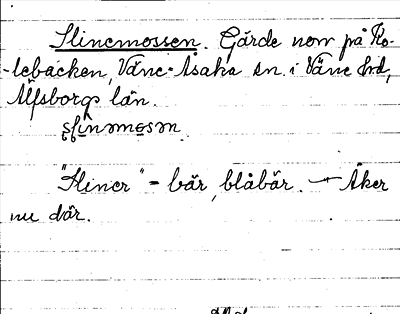 Slinemossen. Gärde norr på Ko-
lebacken, Väne-Åsaka sn. i Väne hd,
Älfsborgs län.
"Sliner" = bär, blåbär. — Åker
nu där.